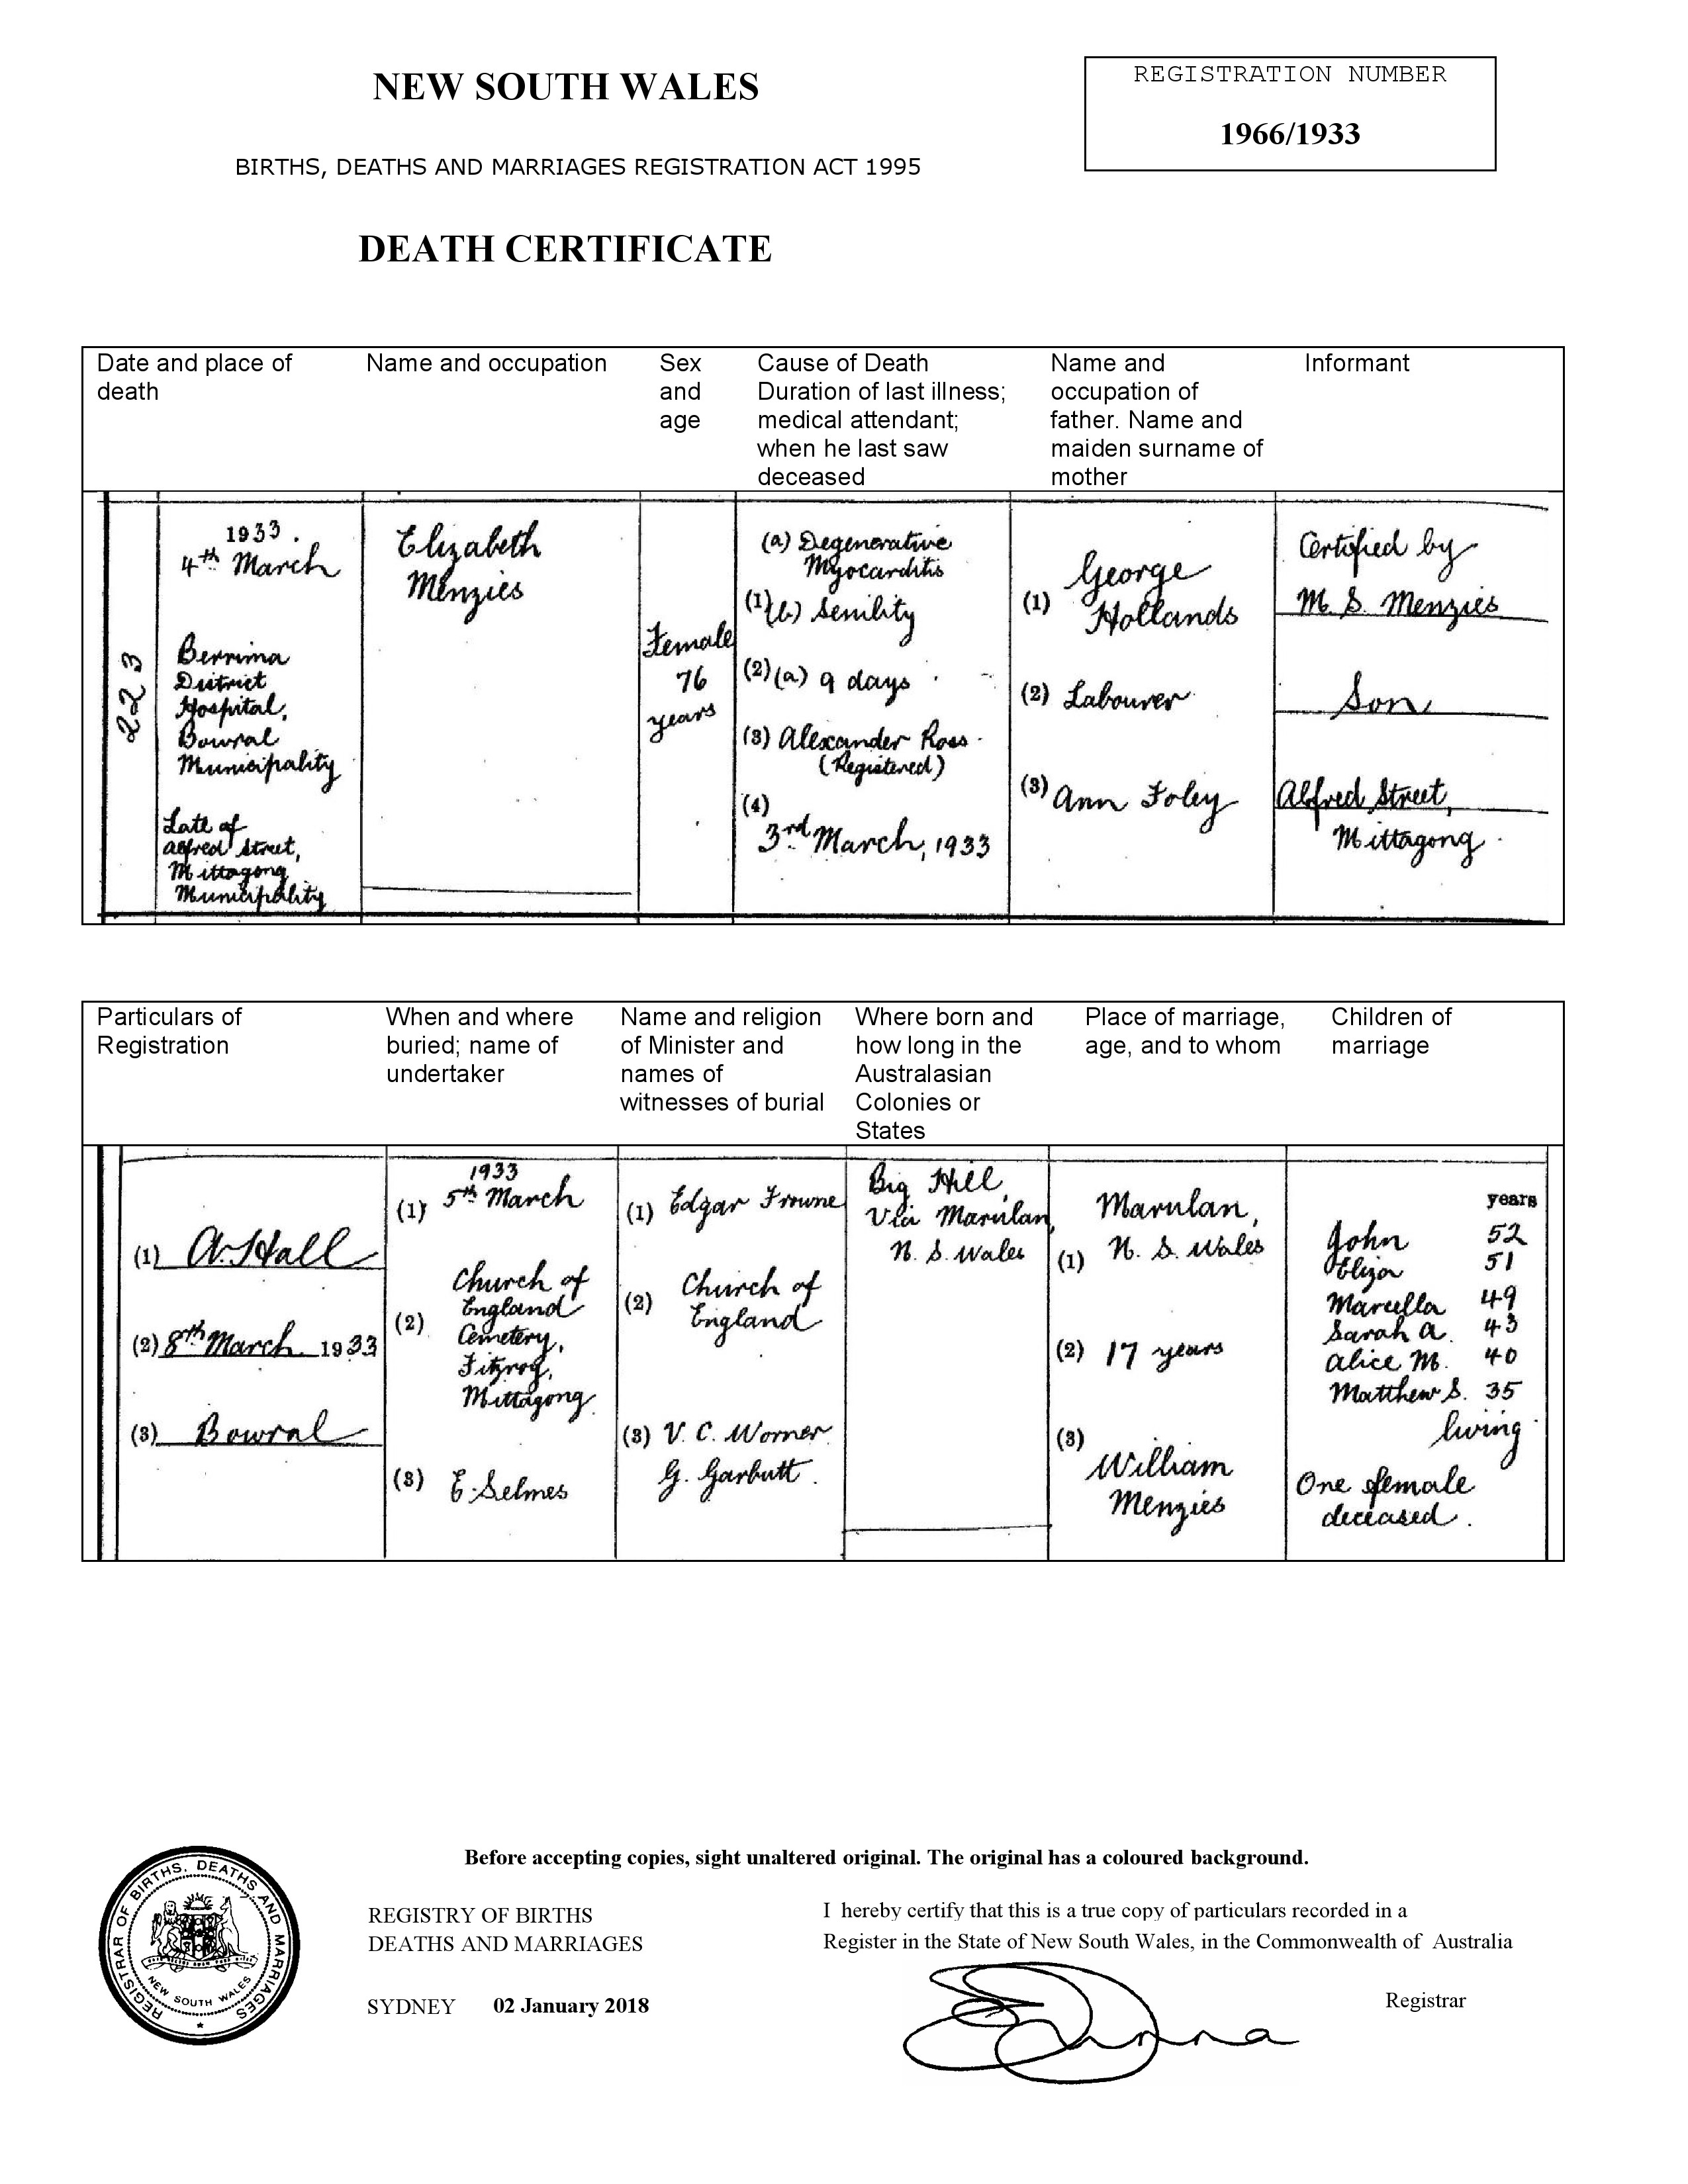 NEW SOUTH WALES
BIRTHS, DEATHS AND MARRIAGES REGISTRATION ACT 1995
DEATH CERTIFICATE
REGISTRATION NUMBER
1966/1933
Date and place of
death
Name and occupation
Sex
and
age
Cause of Death
Duration of last illness;
medical attendant;
when he last saw
deceased
Name and
occupation of
father. Name and
maiden surname of
mother
Informant
223
1933.
4th March
Berrima
District
Hospital,
Bowral
Municipality
Late of
Alfred Street,
Mittagong
Municipality
Elizabeth
Menzies
Female
76
years
(a) Degenerative
Myocarditis
(1) (b) Senility
(2) (a) 9 days
(3) Alexander Ross
(Registered)
(4)
3rd March, 1933
George
(1) Hollands
(2) Labourer
(3) Ann Foley
Certified by
M. S. Menzies
Son
Alfred Street,
Mittagong
Particulars of
Registration
When and where
buried; name of
undertaker
Name and religion
of Minister and
names of
witnesses of burial
Where born and
how long in the
Australasian
Colonies or
States
Place of marriage,
age, and to whom
Children of
marriage
(1) A. Hall
(2) 8th March 1933
(3) Bowral
1933
(1) 5th March
Church of
England
(2) Cemetery,
Fitzroy,
Mittagong.
(3) E. Selmes
(1) Edgar Frowne
(2) Church of
England
(3) V. C. Worner
G. Garbutt.
Big Hill,
Via Marulan,
N. S. Wales
Marulan,
(1) N. S. Wales
(2) 17 years
(3)
William
Menzies
years
John 52
Eliza 51
Marcella 49
Sarah A. 43
Alice M. 40
Matthew S. 35
living
One female
deceased.
Before accepting copies, sight unaltered original. The original has a coloured background.
REGISTRAR OF BIRTHS, DEATHS AND MARRIAGES
NEW SOUTH WALES
REGISTRY OF BIRTHS
DEATHS AND MARRIAGES
SYDNEY 02 January 2018
I hereby certify that this is a true copy of particulars recorded in a
Register in the State of New South Wales, in the Commonwealth of Australia
Registrar